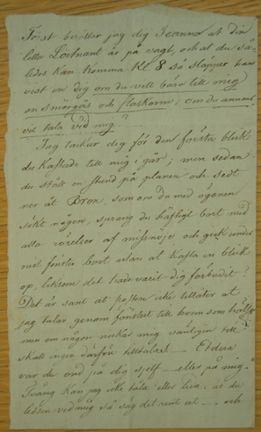 Först berätter jag dig Jeanna at din
lilla Lieutnant är på vagt, och at du så-
ledes kan komma kl 8 så släpper han
vist in dig om du vill bära till mig
en smörgås och flaskorne; om du annars
vil tala vid mig?
Jag tackar dig för den första blick
du kastade till mig i går; men sedan
du stått en stund på planen och sedt
ner åt Bron, som om du med ögonen
sökt någon, sprang du häftigt bort med
alla rörelser af missnöje och gick under
mit fönster bort utan at kasta en blick
op, liksom det hade varit dig förbudit?
Det är sant at posten icke tillåter at
jag talar genom fönstret till dem som
men om någon nickar mig vänligen till
skall ingen därföre tilltalas — Eller
var du ond på dig sjelf — eller på mig —
Tvång kan jag icke tåla eller lida, är du
ledsen vid mig så säg det rent ut — och